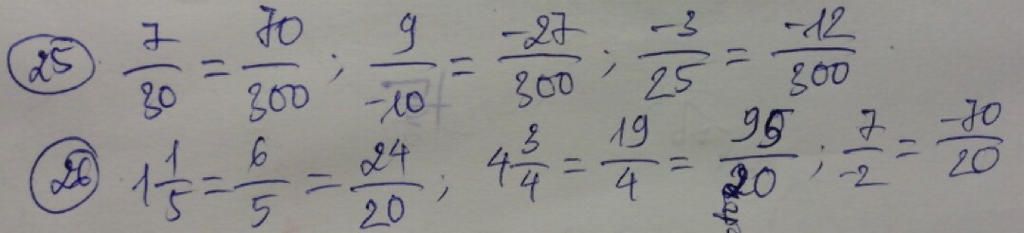 25 7/30 = 70/300 ; 9/-10 = -27/300 ; -3/25 = -12/300
26 1 1/5 = 6/5 = 24/20 ; 4 3/4 = 19/4 = 95/20 ; 7/-2 = -70/20